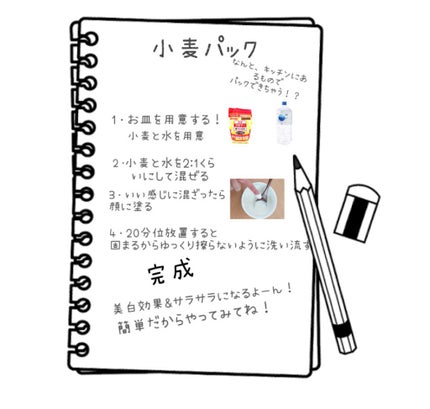 小麦パック
なんと、キッチンにあ
るもので
パックできちゃう！？
1・お皿を用意する！
小麦と水を用意
2・小麦と水を2:1くら
いにして混ぜる
3・いい感じに混ざったら
顔に塗る
4・20分位放置すると
固まるからゆっくり擦らないように洗い流す
完成
美白効果&サラサラになるよーん！
簡単だからやってみてね！